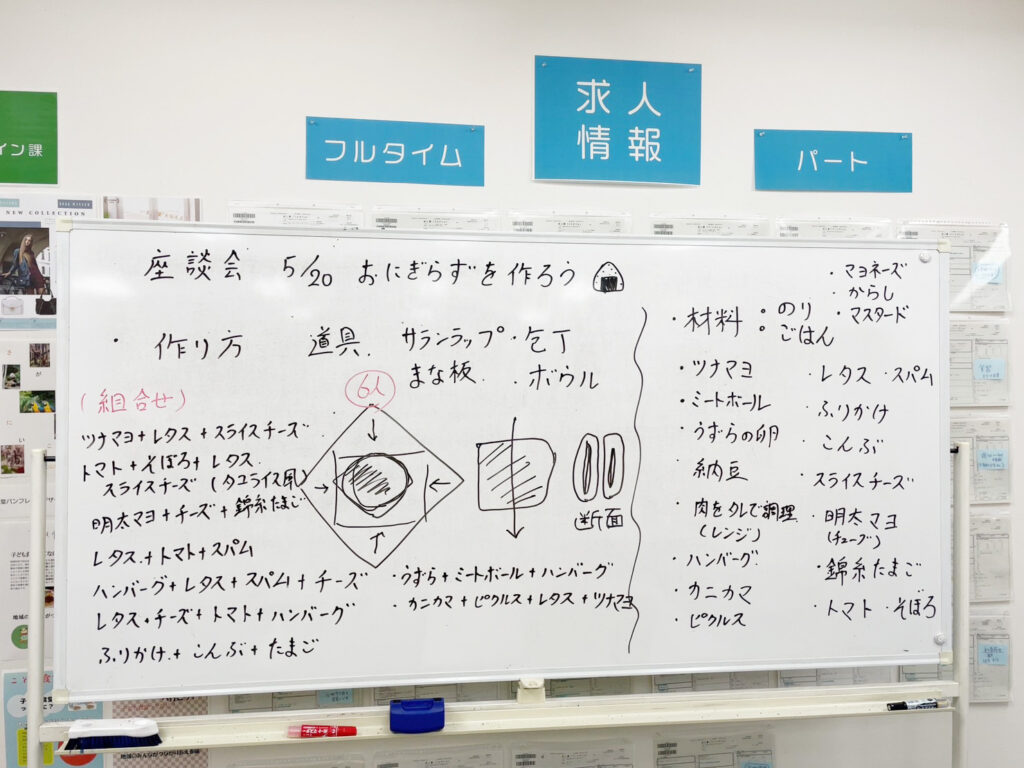 求人
情報
フルタイム
パート
イン課
NEW COLLECTION
座談会 5/20 おにぎらずを作ろう
・作り方 道具. サランラップ・包丁
まな板. ・ボウル
6人
(組合せ)
ツナマヨ+レタス+スライスチーズ
トマト+そぼろ+レタス
スライスチーズ (タコライス風)
明太マヨ+チーズ+錦糸たまご
レタス+トマト+スパム
ハンバーグ+レタス+スパム+チーズ
レタス+チーズ+トマト+ハンバーグ
ふりかけ+こんぶ+たまご
断面
・うずら+ミートボール+ハンバーグ
・カニカマ+ピクルス+レタス+ツナマヨ
・マヨネーズ
・からし
・マスタード
・材料:のり
:ごはん
・ツナマヨ
・ミートボール
・うずらの卵
納豆
・肉をタレで調理
(レンジ)
・ハンバーグ
・カニカマ
・ピクルス
・レタス ・スパム
・ふりかけ
・こんぶ
スライスチーズ
・明太マヨ
(チューブ)
・錦糸たまご
・トマト ・そぼろ